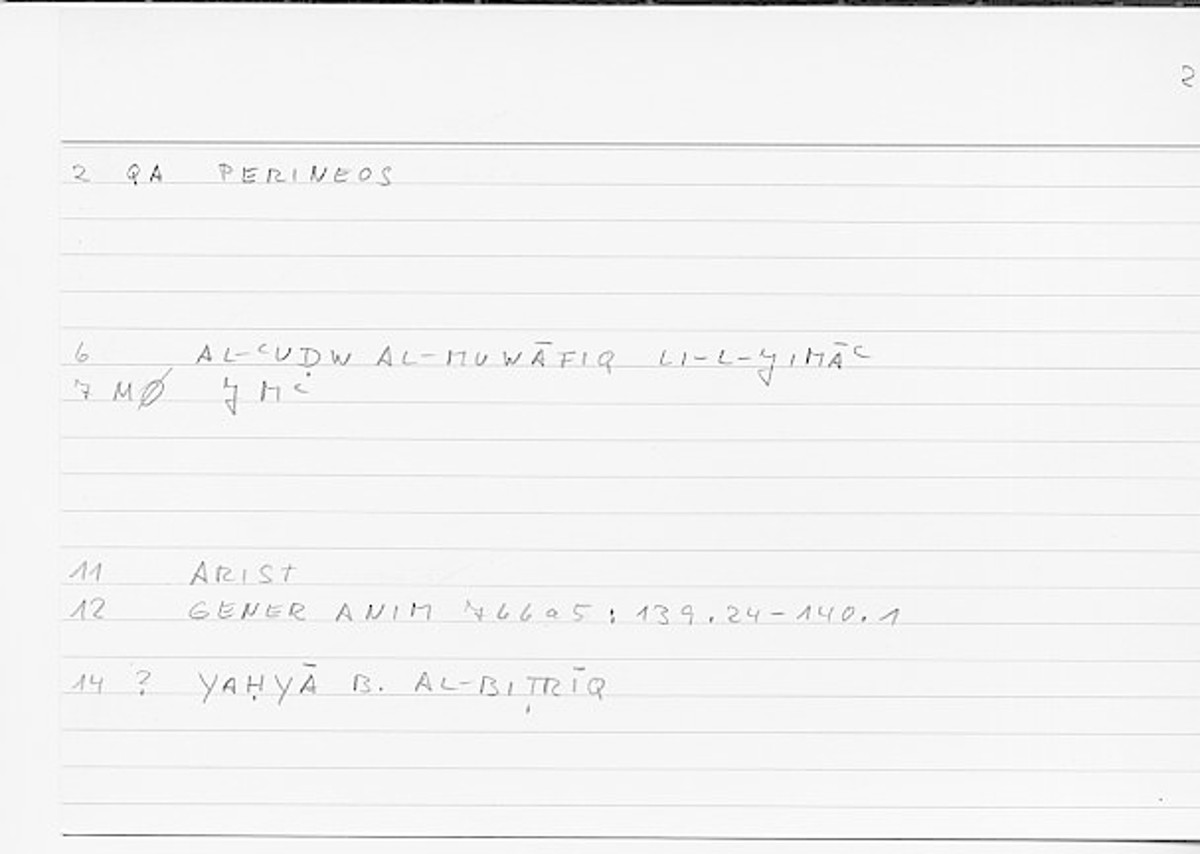 2
2 QA PERINEOS
6 AL-ʿUḌW AL-MUWĀFIQ LI-L-ǧIMĀʿ
7 MØ ǧMʿ
11 ARIST
12 GENER ANIM 766a5 : 139.24-140.1
14 ? YAḤYĀ B. AL-BIṬRĪQ